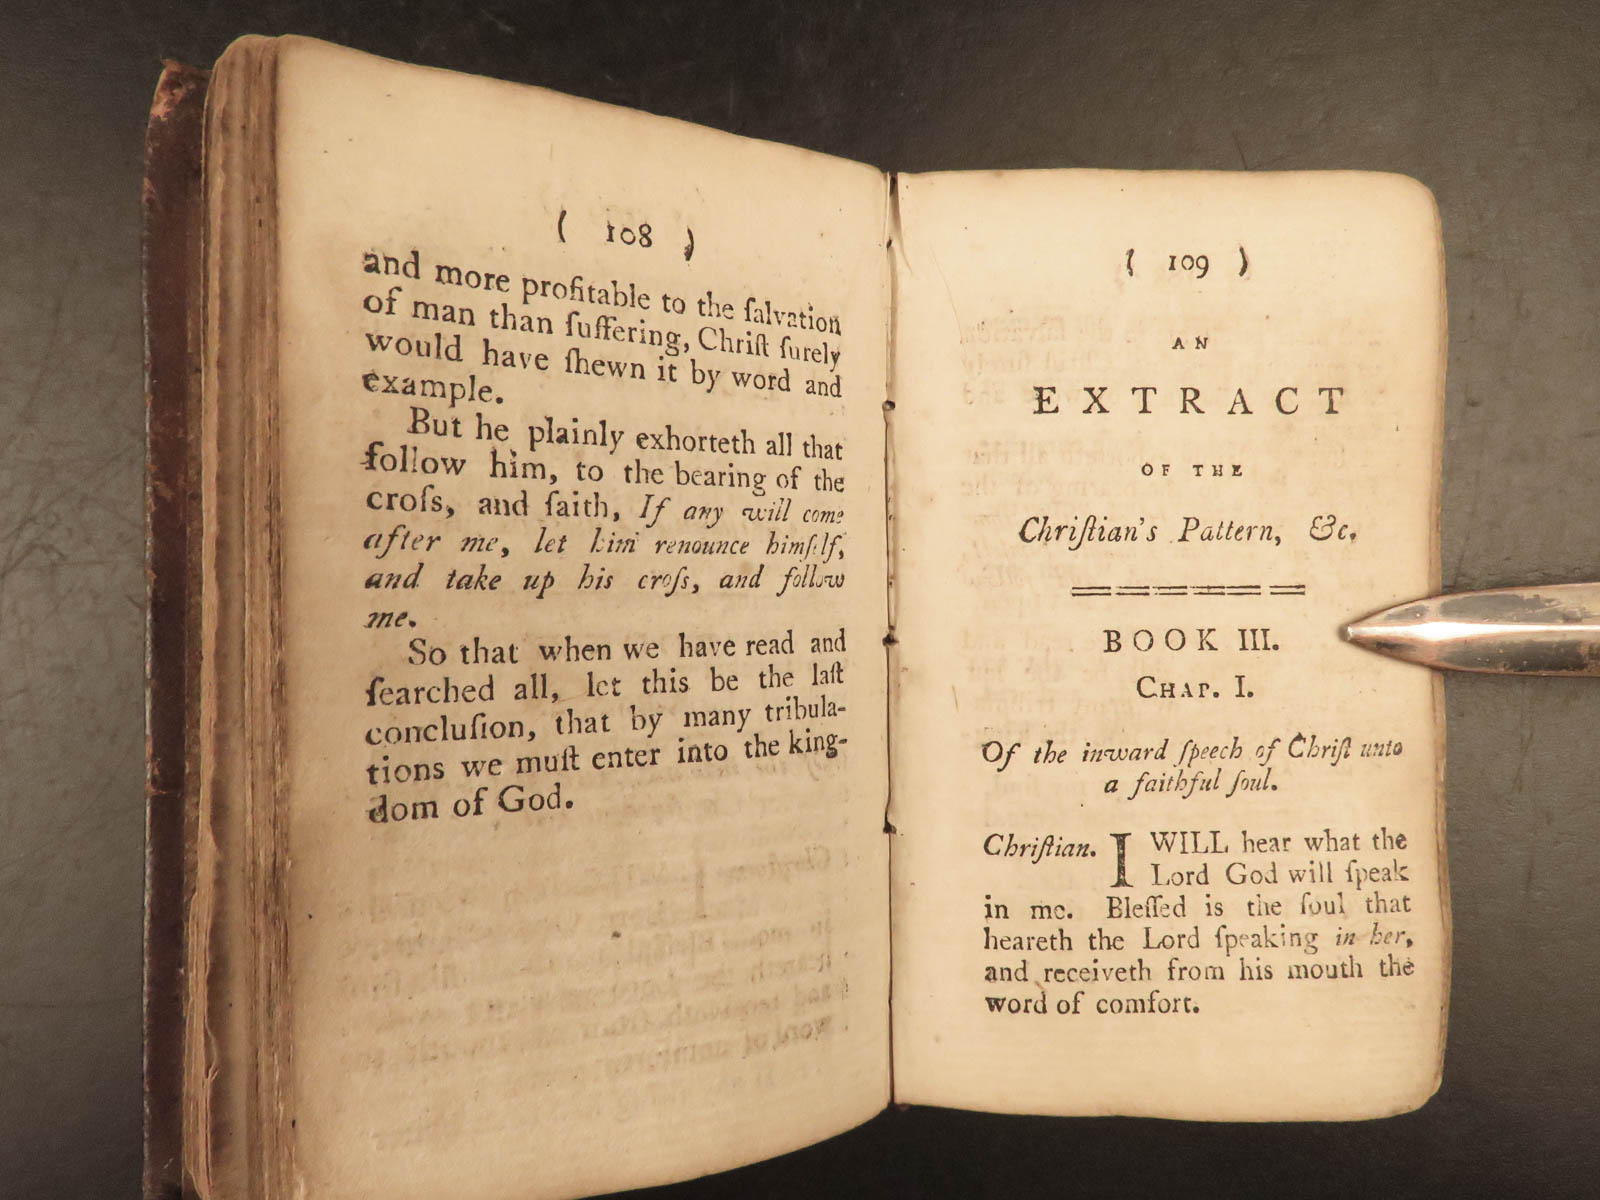 ( 108 )
and more profitable to the ſalvation
of man than ſuffering, Chriſt ſurely
would have ſhewn it by word and
example.
But he plainly exhorteth all that
follow him, to the bearing of the
croſs, and ſaith, If any will come
after me, let him renounce himſelf,
and take up his croſs, and follow
me.
So that when we have read and
ſearched all, let this be the laſt
concluſion, that by many tribula-
tions we muſt enter into the king-
dom of God.
( 109 )
AN
EXTRACT
OF THE
Chriſtian's Pattern, &c.
BOOK III.
CHAP. I.
Of the inward ſpeech of Chriſt unto
a faithful ſoul.
Chriſtian. I WILL hear what the
Lord God will ſpeak
in me. Bleſſed is the ſoul that
heareth the Lord ſpeaking in her,
and receiveth from his mouth the
word of comfort.